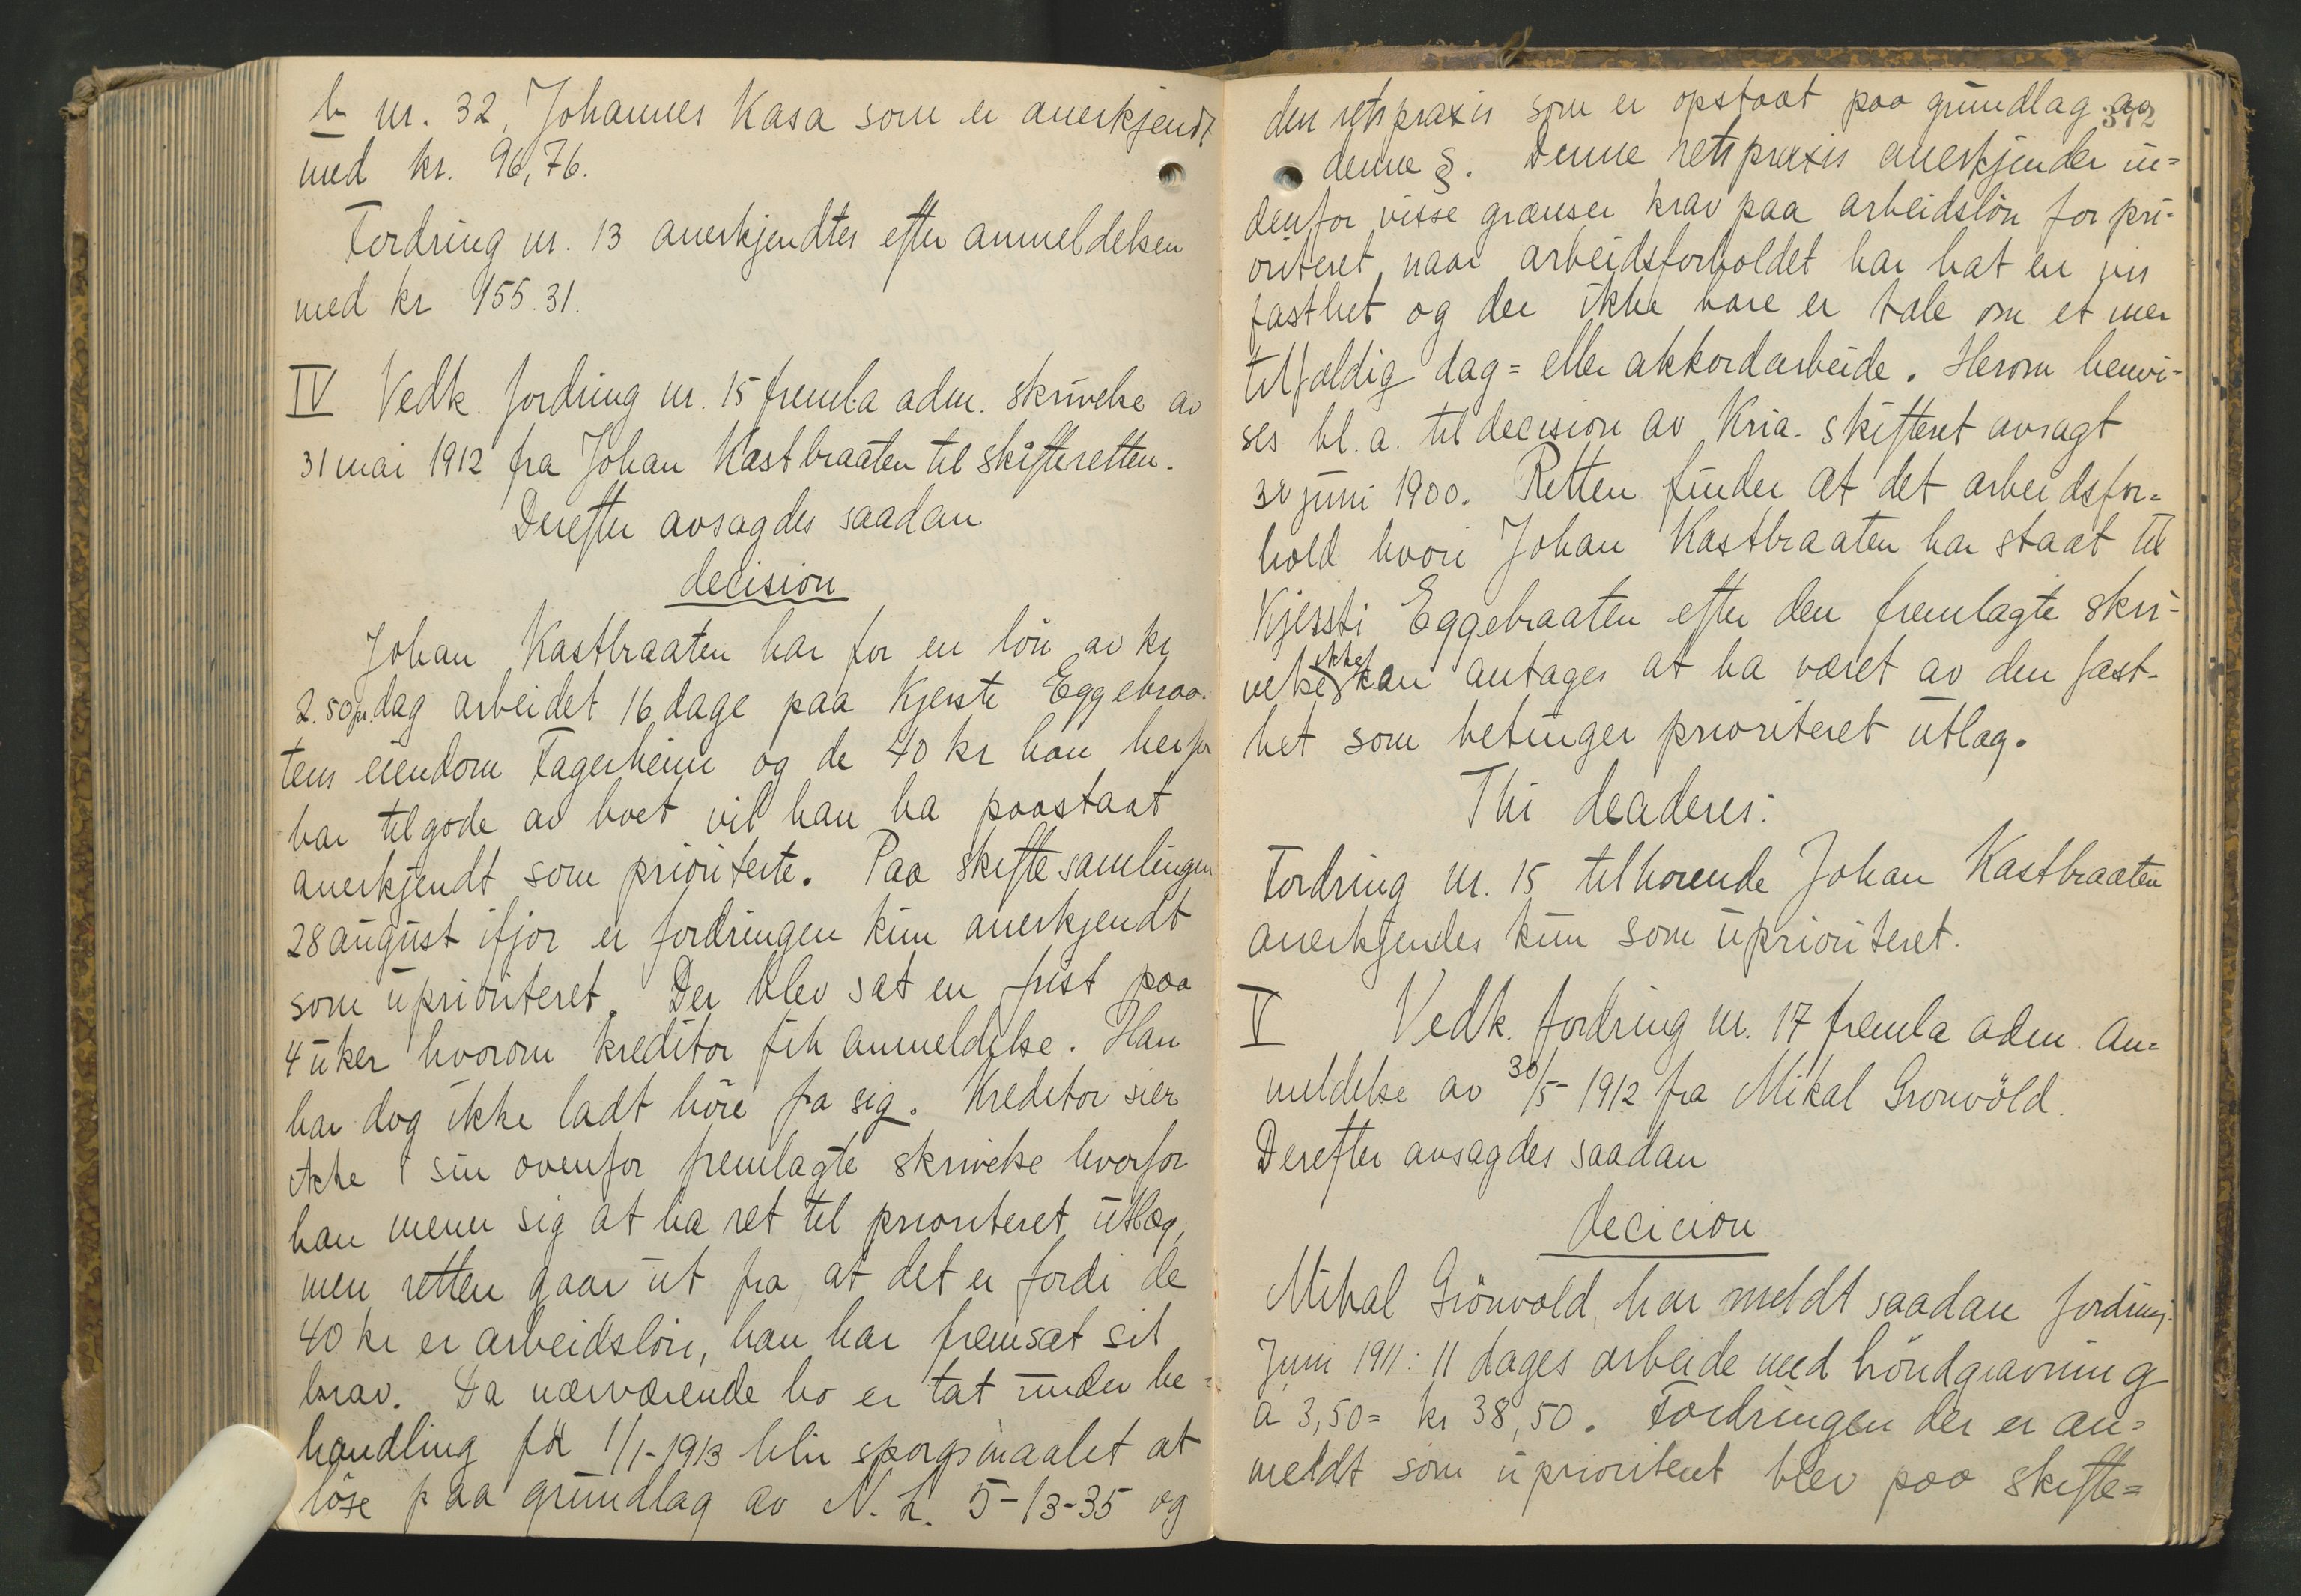 b nr. 32, Johannes Kasa som er anerkjendt
med kr. 96,76.
Fordring nr. 13 anerkjendtes efter anmeldelsen
med kr 155.31.
IV Vedk. fordring nr. 15 fremla adm. skrivelse av
31 mai 1912 fra Johan Kastbraaten til skifteretten.
Derefter avsagdes saadan
decision
Johan Kastbraaten har for en lön av kr
2.50 pr. dag arbeidet 16 dage paa Kjersti Eggebraa-
tens eiendom Fagerheim og de 40 kr han herfor
har tilgode av boet vil han ha paastaat
anerkjendt som prioriterte. Paa skiftesamlingen
28 august ifjor er fordringen kun anerkjendt
som uprioriteret. Der blev sat en frist paa
4 uker hvorom kreditor fik anmeldelse. Han
har dog ikke ladt höre fra sig. Kreditor sier
ikke i sin ovenfor fremlagte skrivelse hvorfor
han mener sig at ha ret til prioriteret utlæg,
men retten gaar ut fra, at det er fordi de
40 kr er arbeidslön, han har fremsat sit
krav. Da nærværende bo er tat under be=
handling för 1/1-1913 blir spørgsmaalet at
löse paa grundlag av N. L. 5-13-35 og
372
den retspraxis som er opstaat paa grundlag av
denne §. Denne retspraxis anerkjender in=
denfor visse grænser krav paa arbeidslön for pri-
oriteret, naar arbeidsforholdet har hat en vis
fasthet og der ikke bare er tale om et mer
tilfældig dag= eller akkordarbeide. Herom henvi-
ses bl. a. til decision av Kria. skifteret avsagt
30 juni 1900. Retten finder at det arbeidsfor=
hold hvori Johan Kastbraaten har staat til
Kjersti Eggebraaten efter den fremlagte skri-
velse ikke kan antages at ha været av den fast-
het som betinger prioriteret utlæg.
Thi decideres:
Fordring nr. 15 tilhörende Johan Kastbraaten
anerkjendes kun som uprioriteret.
V Vedk. fordring nr. 17 fremla adm. an=
meldelse av 30/5-1912 fra Mikal Gronvöld.
Derefter avsagdes saadan
decicion
Mikal Grönvold, har meldt saadan fordring:
Juni 1911: 11 dages arbeide med bröndgravning
à 3,50 = kr 38,50. Fordringen der er an=
meldt som uprioritert blev paa skifte=